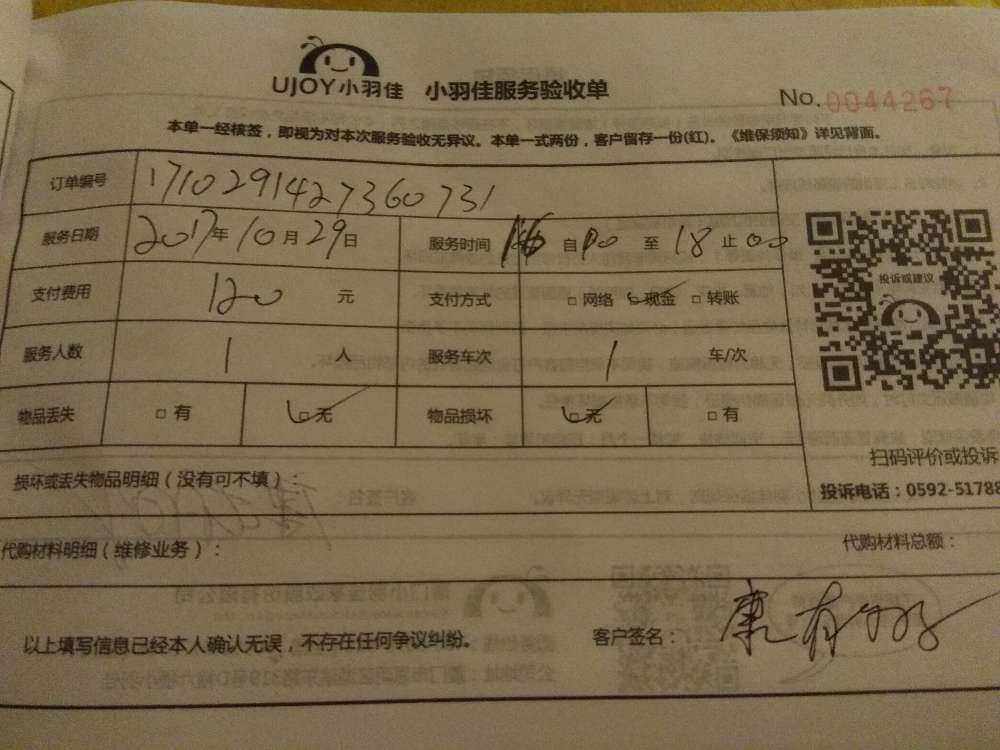 UJOY小羽佳 小羽佳服务验收单 No.0044267
本单一经核签，即视为对本次服务验收无异议。本单一式两份，客户留存一份(红)。《维保须知》详见背面。
订单编号 17102914273607​31
服务日期 2017年10月29日 服务时间 16 自 00 至 18 止 00
支付费用 120 元 支付方式 □网络 ☑现金 □转账
服务人数 1 人 服务车次 1 车/次
物品丢失 □有 ☑无 物品损坏 ☑无 □有
投诉或建议
扫码评价或投诉
投诉电话：0592-51788
损坏或丢失物品明细（没有可不填）：
代购材料明细（维修业务）： 代购材料总额：
以上填写信息已经本人确认无误，不存在任何争议纠纷。 客户签名： 康有